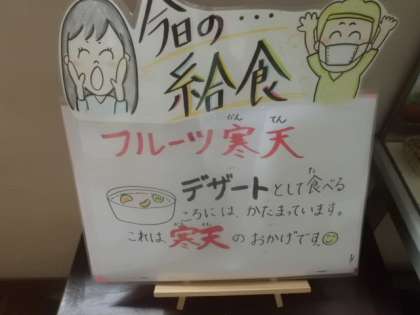 今日の…
給食
フルーツ寒天
かんてん
デザートとして食べる
た
ころには、かたまっています。
これは寒天のおかげです。
かんてん